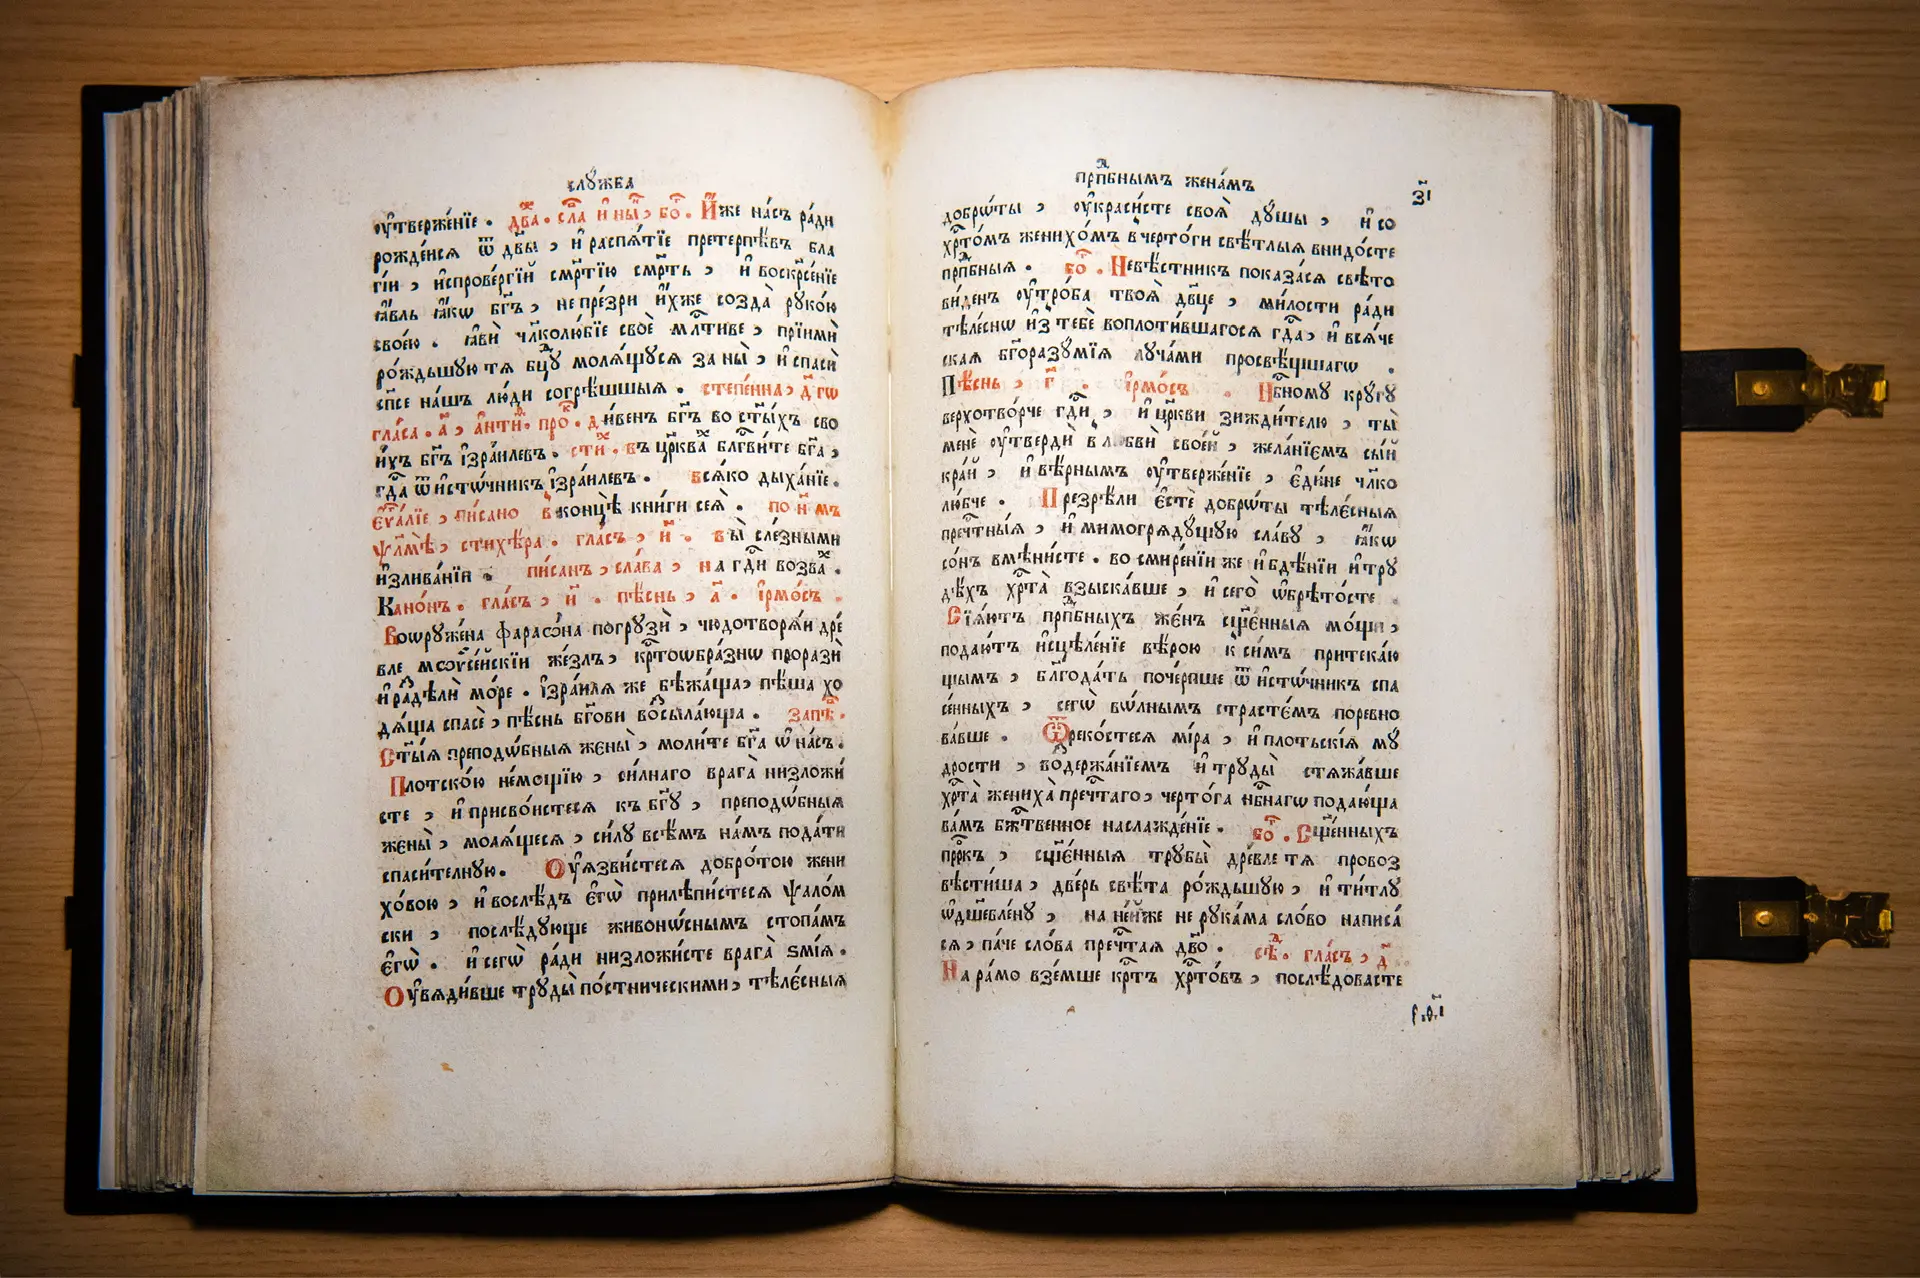 слꙋ́жба
ᲂу҆тверже́нїе . два . сла и҆ ны́ , бо́ . И҆́же на́съ ра́ди
рожде́йсѧ ѿ дв҃ы , и҆ распѧ́тїе претерпѣ́въ бла
гі́и , и҆спрове́ргїй сме́ртїю сме́рть , и҆ воскр҃се́нїе
ꙗ҆́вль ꙗ҆́кѡ бг҃ъ , не пре́зри и҆̀хже созда̀ рꙋко́ю
свое́ю . ꙗ҆вѝ чл҃колю́бїе своѐ мл҃тиве , прїимѝ
ро́ждьшꙋю тѧ бц҃ꙋ молѧ́щꙋсѧ за ны̀ , и҆ спасѝ
сп҃се на́шъ лю́ди согрѣ́шшыѧ . степе́нна , д҃ гѡ
гла́са . а҃ , а҆нти . про . ди́венъ бг҃ъ во ст҃ы́хъ сво
и́хъ бг҃ъ і҆зра́илевъ . сти . въ цр҃ква блг҃ви́те бг҃а ,
гдⷭ҇а ѿ и҆сто́чникъ і҆зра́илевъ . всѧ́ко дыха́нїе .
є҆ѵⷢ҇а́лїе , пи́сано в концѣ̀ кни́ги сеѧ̀ . по н҃ мъ
ѱал҃мѣ̀ , стихѣ́ра . гла́съ , и҃ . вы̀ сле́зными
и҆злива́нїи . пи́санъ , сла́ва , на гдⷭ҇и возва .
Кано́нъ . гла́съ , и҃ . пѣ́снь , а҃ . і҆рмо́съ .
Воѡрꙋже́на фараѡ́на погрꙋзѝ , чюдотворѧ́й дре́
вле мѡѷсе́йскїи же́злъ , кр҃тоѡбра́знѡ проразѝ
и҆ раздѣлѝ мо́ре . і҆зра́илѧ же бѣжа́ща , пѣ́ша хо
дѧ́ща спасѐ , пѣ́снь бг҃ови восыла́юща . запѣ .
Ст҃ы́ѧ преподѡ́бныѧ жены̀ , моли́те бг҃а ѡ҆ на́съ .
Плотско́ю не́мощїю , си́лнаго врага̀ низложи́
сте , и҆ присво́истесѧ къ бг҃ꙋ , преподѡ́бныѧ
жены̀ , молѧ́щесѧ , си́лꙋ всѣ́мъ на́мъ пода́ти
спаси́телнꙋю . Оу҆ѧзви́стесѧ добро́тою жени
хо́вою , и҆ вослѣ́дъ є҆гѡ̀ прилѣпи́стесѧ ѱало́м
ски , послѣ́дꙋюще живоно́снымъ стопа́мъ
є҆гѡ̀ . и҆ сегѡ̀ ра́ди низложи́сте врага̀ ѕмі́ѧ .
Оу҆вѧди́вше трꙋды̀ по́стническими , тѣле́сныѧ
прпⷣбнымъ жена́мъ
з҃і
добро́ты , ᲂу҆краси́сте своѧ̀ дꙋ́шы , и҆ со
хрⷭ҇то́мъ женихо́мъ в черто́ги свѣ́тлыѧ внидо́сте
прпⷣбныѧ . бо́ . Невѣ́стникъ показа́сѧ свѣто
ви́денъ ᲂу҆тро́ба твоѧ̀ дв҃це , ми́лости ра́ди
тѣле́снѡ и҆з тебѐ воплоти́вшагосѧ гдⷭ҇а , и҆ всѧ́че
скаѧ бг҃оразꙋ́мїѧ лꙋча́ми просвѣ́щшагѡ .
Пѣ́снь , г҃ . і҆рмо́съ . Нбⷭ҇номꙋ крꙋ́гꙋ
верхотво́рче гдⷭ҇и , и҆ цр҃кви зижди́телю , ты̀
менѐ ᲂу҆твердѝ в любвѝ свое́й , жела́нїемъ сы́й
кра́й , и҆ вѣ́рнымъ ᲂу҆тверже́нїе , є҆ди́не чл҃ко
лю́бче . Презрѣ́ли є҆стѐ добро́ты тѣле́сныѧ
преч҃тныѧ , и҆ мимогрѧдꙋ́щꙋю сла́вꙋ , ꙗ҆́кѡ
со́нъ вмѣни́сте . во смире́нїи же и҆ бдѣ́нїи и҆ трꙋ
дѣ́хъ хрⷭ҇та̀ взыска́вше , и҆ сего̀ ѡ҆брѣто́сте .
Сїѧ́ютъ прпⷣбныхъ же́нъ сщ҃е́нныѧ мо́щи ,
подаю́тъ и҆сцѣле́нїе вѣ́рою к си́мъ притека́ю
щымъ , блгⷣода́ть почерпше ѿ и҆сто́чникъ спа
се́нныхъ , сегѡ̀ во́лнымъ страсте́мъ поревно
ва́вше . Ѿреко́стесѧ мі́ра , и҆ плотьскі́ѧ мꙋ́
дрости , водержа́нїемъ и҆ трꙋды̀ стѧжа́вше
хрⷭ҇та̀ жениха̀ преч҃таго , черто́га нбⷭ҇нагѡ подаю́ща
ва́мъ бж҃твенное наслажде́нїе . бо́ . Сщ҃е́нныхъ
прⷪ҇ркъ , сщ҃е́нныѧ трꙋбы̀ дре́вле тѧ провоз
вѣсти́ша , две́рь свѣ́та ро́ждьшꙋю , и҆ ти́тлꙋ
ѡ҆дш҃евле́нꙋ , на не́йже не рꙋка́ма сло́во написа́
сѧ , па́че сло́ва преч҃таѧ дв҃о . сѣ . гла́съ , д҃
На ра́мо взе́мше крⷭ҇тъ хрⷭ҇то́въ , послѣ́довасте